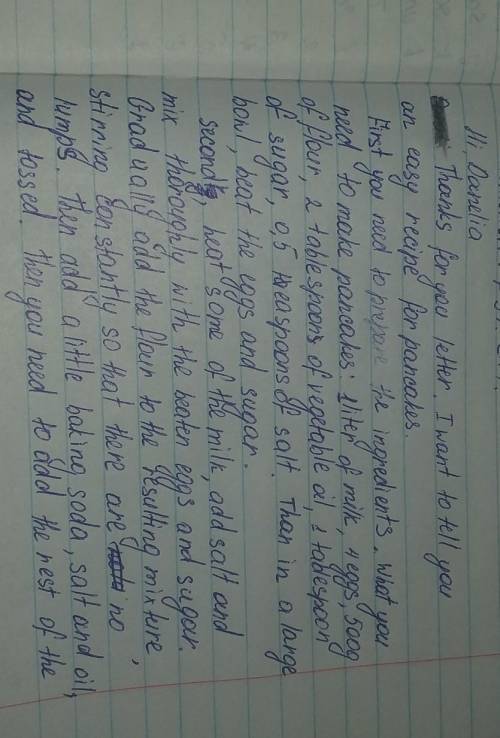 Hi Danelia
Thanks for you letter. I want to tell you
an easy recipe for pancakes.
First you need to prepare the ingredients. What you
need to make pancakes: 1 liter of milk, 4 eggs, 500g
of flour, 2 tablespoons of vegetable oil, 1 tabespoon
of sugar, 0,5 theaspoons of salt. Than in a large
bowl, beat the eggs and sugar.
Second, heat some of the milk, add salt and
mix thoroghly with the beaten eggs and sugar.
Gradually add the flour to the resulting mixture,
stirring constantly so that there are no
lumps. Then add a little baking soda, salt and oil,
and tossed. Then you need to add the rest of the